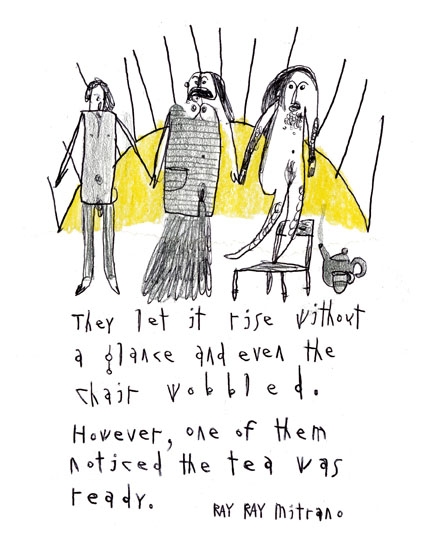 They let it rise without
a glance and even the
chair wobbled.
However, one of them
noticed the tea was
ready.
RAY RAY Mitrano